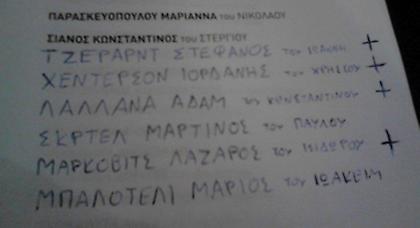 ΠΑΡΑΣΚΕΥΟΠΟΥΛΟΥ ΜΑΡΙΑΝΝΑ του ΝΙΚΟΛΑΟΥ
ΣΙΑΝΟΣ ΚΩΝΣΤΑΝΤΙΝΟΣ του ΣΤΕΡΓΙΟΥ
ΤΖΕΡΑΡΝΤ ΣΤΕΦΑΝΟΣ του ΙΩΣΗΦ +
ΧΕΝΤΕΡΣΟΝ ΙΟΡΔΑΝΗΣ του ΧΡΗΣΤΟΥ +
ΛΑΛΛΑΝΑ ΑΔΑΜ του ΚΩΝΣΤΑΝΤΙΝΟΥ +
ΣΚΡΤΕΛ ΜΑΡΤΙΝΟΣ του ΠΑΥΛΟΥ
ΜΑΡΚΟΒΙΤΣ ΛΑΖΑΡΟΣ του ΙΣΙΔΩΡΟΥ +
ΜΠΑΛΟΤΕΛΙ ΜΑΡΙΟΣ του ΙΩΑΚΕΙΜ